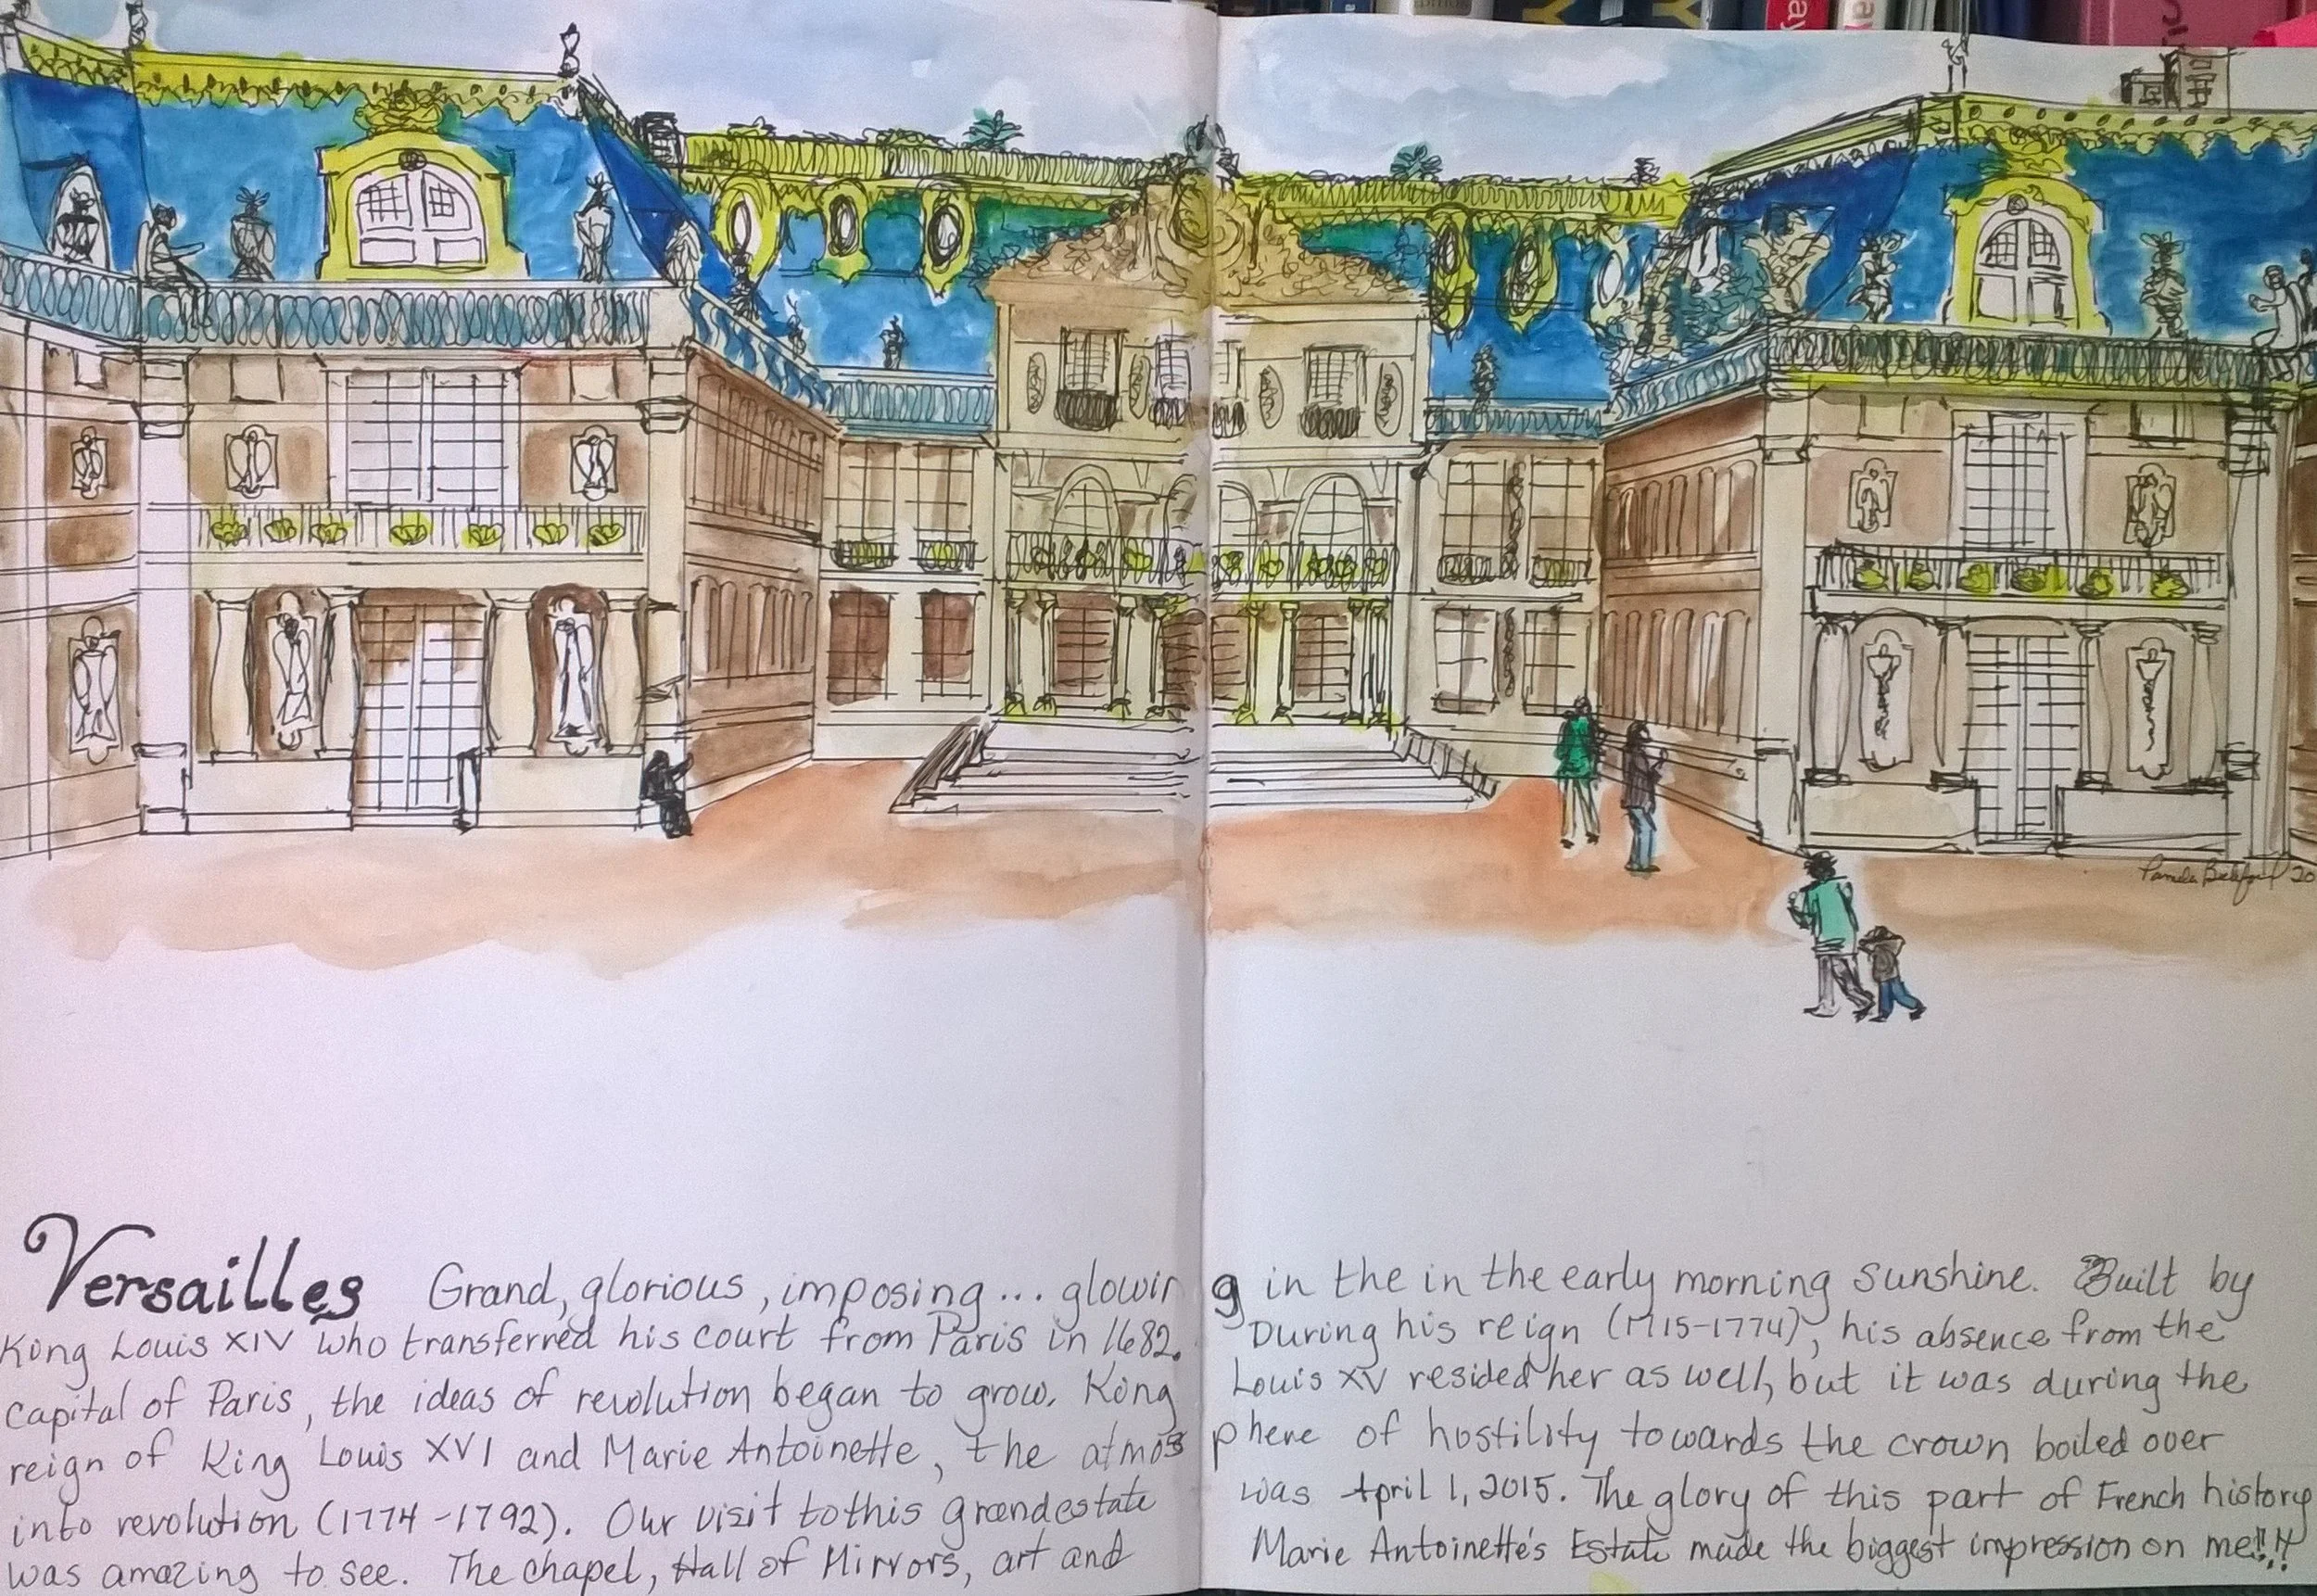 EDITION
ay
a
Pamela 20
Versailles Grand, glorious, imposing... glowing in the in the early morning sunshine. Built by
King Louis XIV who transferred his court from Paris in 1682. During his reign (1715-1774), his absence from the
capital of Paris, the ideas of revolution began to grow. King Louis XV resided her as well, but it was during the
reign of King Louis XVI and Marie Antoinette, the atmosphere of hostility towards the crown boiled over
into revolution (1774-1792). Our visit to this grand estate was April 1, 2015. The glory of this part of French history
was amazing to see. The chapel, Hall of Mirrors, art and Marie Antoinette's Estate made the biggest impression on me!!!!